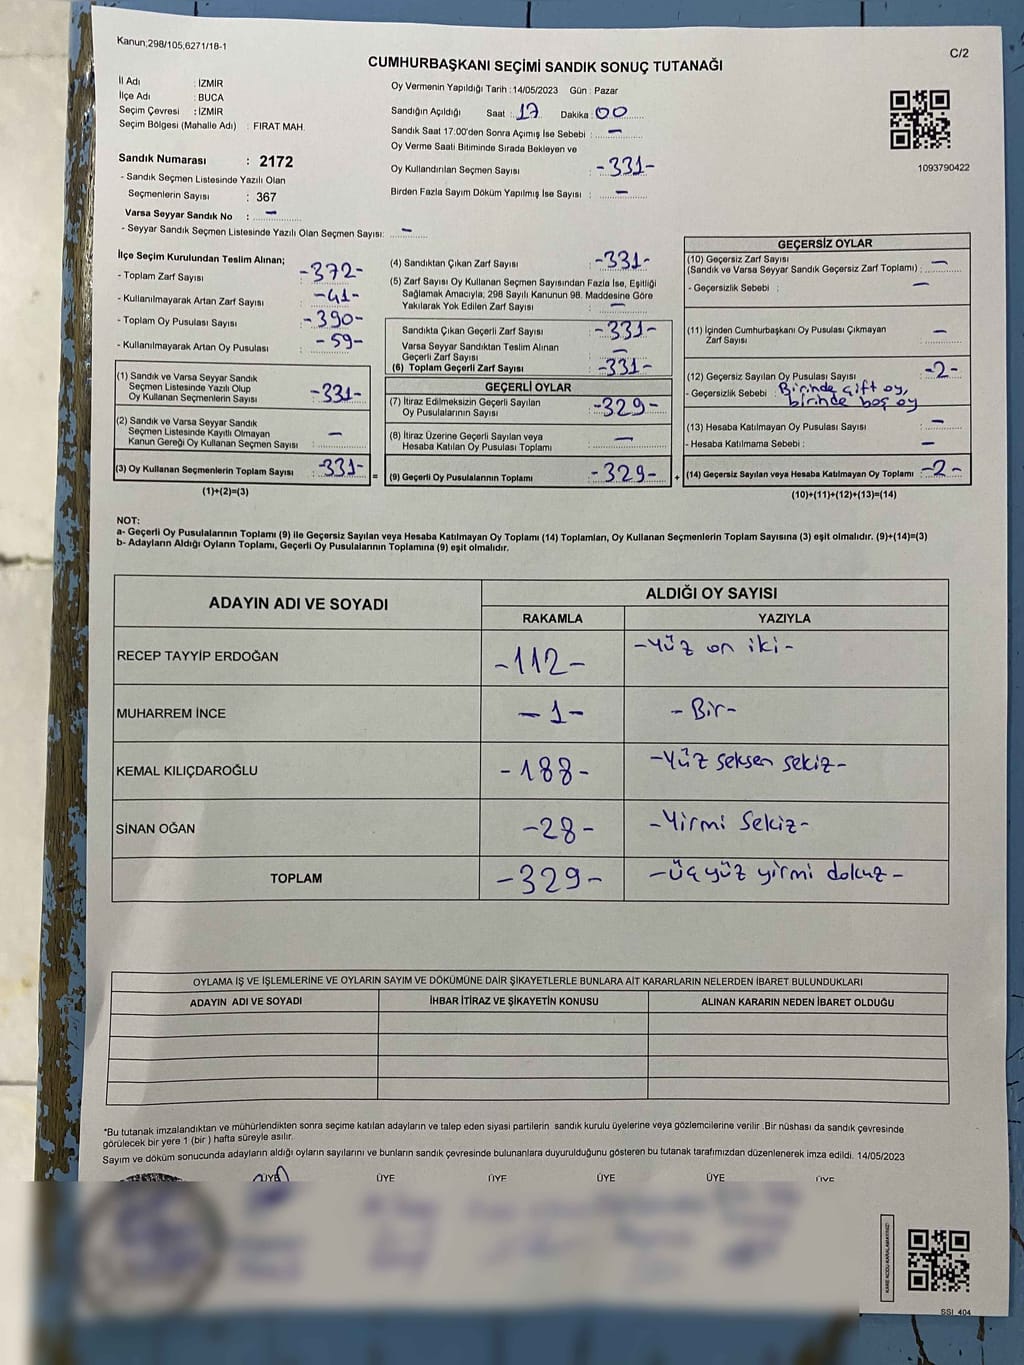 Kanun;298/105,6271/18-1
C/2
CUMHURBAŞKANI SEÇİMİ SANDIK SONUÇ TUTANAĞI
İl Adı : İZMİR
İlçe Adı : BUCA
Seçim Çevresi : İZMİR
Seçim Bölgesi (Mahalle Adı) : FIRAT MAH.
Sandık Numarası : 2172
- Sandık Seçmen Listesinde Yazılı Olan
Seçmenlerin Sayısı : 367
Varsa Seyyar Sandık No : -
- Seyyar Sandık Seçmen Listesinde Yazılı Olan Seçmen Sayısı: -
Oy Vermenin Yapıldığı Tarih :14/05/2023 Gün : Pazar
Sandığın Açıldığı Saat : 17 Dakika : 00
Sandık Saat 17:00'den Sonra Açımış İse Sebebi : -
Oy Verme Saati Bitiminde Sırada Bekleyen ve
Oy Kullandırılan Seçmen Sayısı : -331-
Birden Fazla Sayım Döküm Yapılmış İse Sayısı : -
1093790422
İlçe Seçim Kurulundan Teslim Alınan;
- Toplam Zarf Sayısı -372-
- Kullanılmayarak Artan Zarf Sayısı -41-
- Toplam Oy Pusulası Sayısı -390-
- Kullanılmayarak Artan Oy Pusulası -59-
(1) Sandık ve Varsa Seyyar Sandık
Seçmen Listesinde Yazılı Olup
Oy Kullanan Seçmenlerin Sayısı -331-
(2) Sandık ve Varsa Seyyar Sandık
Seçmen Listesinde Kayıtlı Olmayan
Kanun Gereği Oy Kullanan Seçmen Sayısı -
(3) Oy Kullanan Seçmenlerin Toplam Sayısı -331- =
(1)+(2)=(3)
(4) Sandıktan Çıkan Zarf Sayısı -331-
(5) Zarf Sayısı Oy Kullanan Seçmen Sayısından Fazla İse, Eşitliği
Sağlamak Amacıyla; 298 Sayılı Kanunun 98. Maddesine Göre
Yakılarak Yok Edilen Zarf Sayısı : -
Sandıkta Çıkan Geçerli Zarf Sayısı -331-
Varsa Seyyar Sandıktan Teslim Alınan
Geçerli Zarf Sayısı -
(6) Toplam Geçerli Zarf Sayısı -331-
GEÇERLİ OYLAR
(7) İtiraz Edilmeksizin Geçerli Sayılan
Oy Pusulalarının Sayısı -329-
(8) İtiraz Üzerine Geçerli Sayılan veya
Hesaba Katılan Oy Pusulası Toplamı -
(9) Geçerli Oy Pusulalarının Toplamı -329- +
GEÇERSİZ OYLAR
(10) Geçersiz Zarf Sayısı
(Sandık ve Varsa Seyyar Sandık Geçersiz Zarf Toplamı) : -
- Geçersizlik Sebebi : -
(11) İçinden Cumhurbaşkanı Oy Pusulası Çıkmayan
Zarf Sayısı -
(12) Geçersiz Sayılan Oy Pusulası Sayısı -2-
- Geçersizlik Sebebi : Birinde çift oy,
birinde boş oy
(13) Hesaba Katılmayan Oy Pusulası Sayısı : -
- Hesaba Katılmama Sebebi : -
(14) Geçersiz Sayılan veya Hesaba Katılmayan Oy Toplamı -2-
(10)+(11)+(12)+(13)=(14)
NOT:
a- Geçerli Oy Pusulalarının Toplamı (9) ile Geçersiz Sayılan veya Hesaba Katılmayan Oy Toplamı (14) Toplamları, Oy Kullanan Seçmenlerin Toplam Sayısına (3) eşit olmalıdır. (9)+(14)=(3)
b- Adayların Aldığı Oyların Toplamı, Geçerli Oy Pusulalarının Toplamına (9) eşit olmalıdır.
ADAYIN ADI VE SOYADI ALDIĞI OY SAYISI
RAKAMLA YAZIYLA
RECEP TAYYİP ERDOĞAN -112- -Yüz on iki-
MUHARREM İNCE -1- -Bir-
KEMAL KILIÇDAROĞLU -188- -Yüz seksen sekiz-
SİNAN OĞAN -28- -Yirmi Sekiz-
TOPLAM -329- -üç yüz yirmi dokuz-
OYLAMA İŞ VE İŞLEMLERİNE VE OYLARIN SAYIM VE DÖKÜMÜNE DAİR ŞİKAYETLERLE BUNLARA AİT KARARLARIN NELERDEN İBARET BULUNDUKLARI
ADAYIN ADI VE SOYADI İHBAR İTİRAZ VE ŞİKAYETİN KONUSU ALINAN KARARIN NEDEN İBARET OLDUĞU
*Bu tutanak imzalandıktan ve mühürlendikten sonra seçime katılan adayların ve talep eden siyasi partilerin sandık kurulu üyelerine veya gözlemcilerine verilir .Bir nüshası da sandık çevresinde
görülecek bir yere 1 (bir ) hafta süreyle asılır.
Sayım ve döküm sonucunda adayların aldığı oyların sayılarını ve bunların sandık çevresinde bulunanlara duyurulduğunu gösteren bu tutanak tarafımızdan düzenlenerek imza edildi. 14/05/2023
ÜYE ÜYE ÜYE ÜYE ÜYE ÜYE
KARE KODU KARALAMAYINIZ!
SSI_404